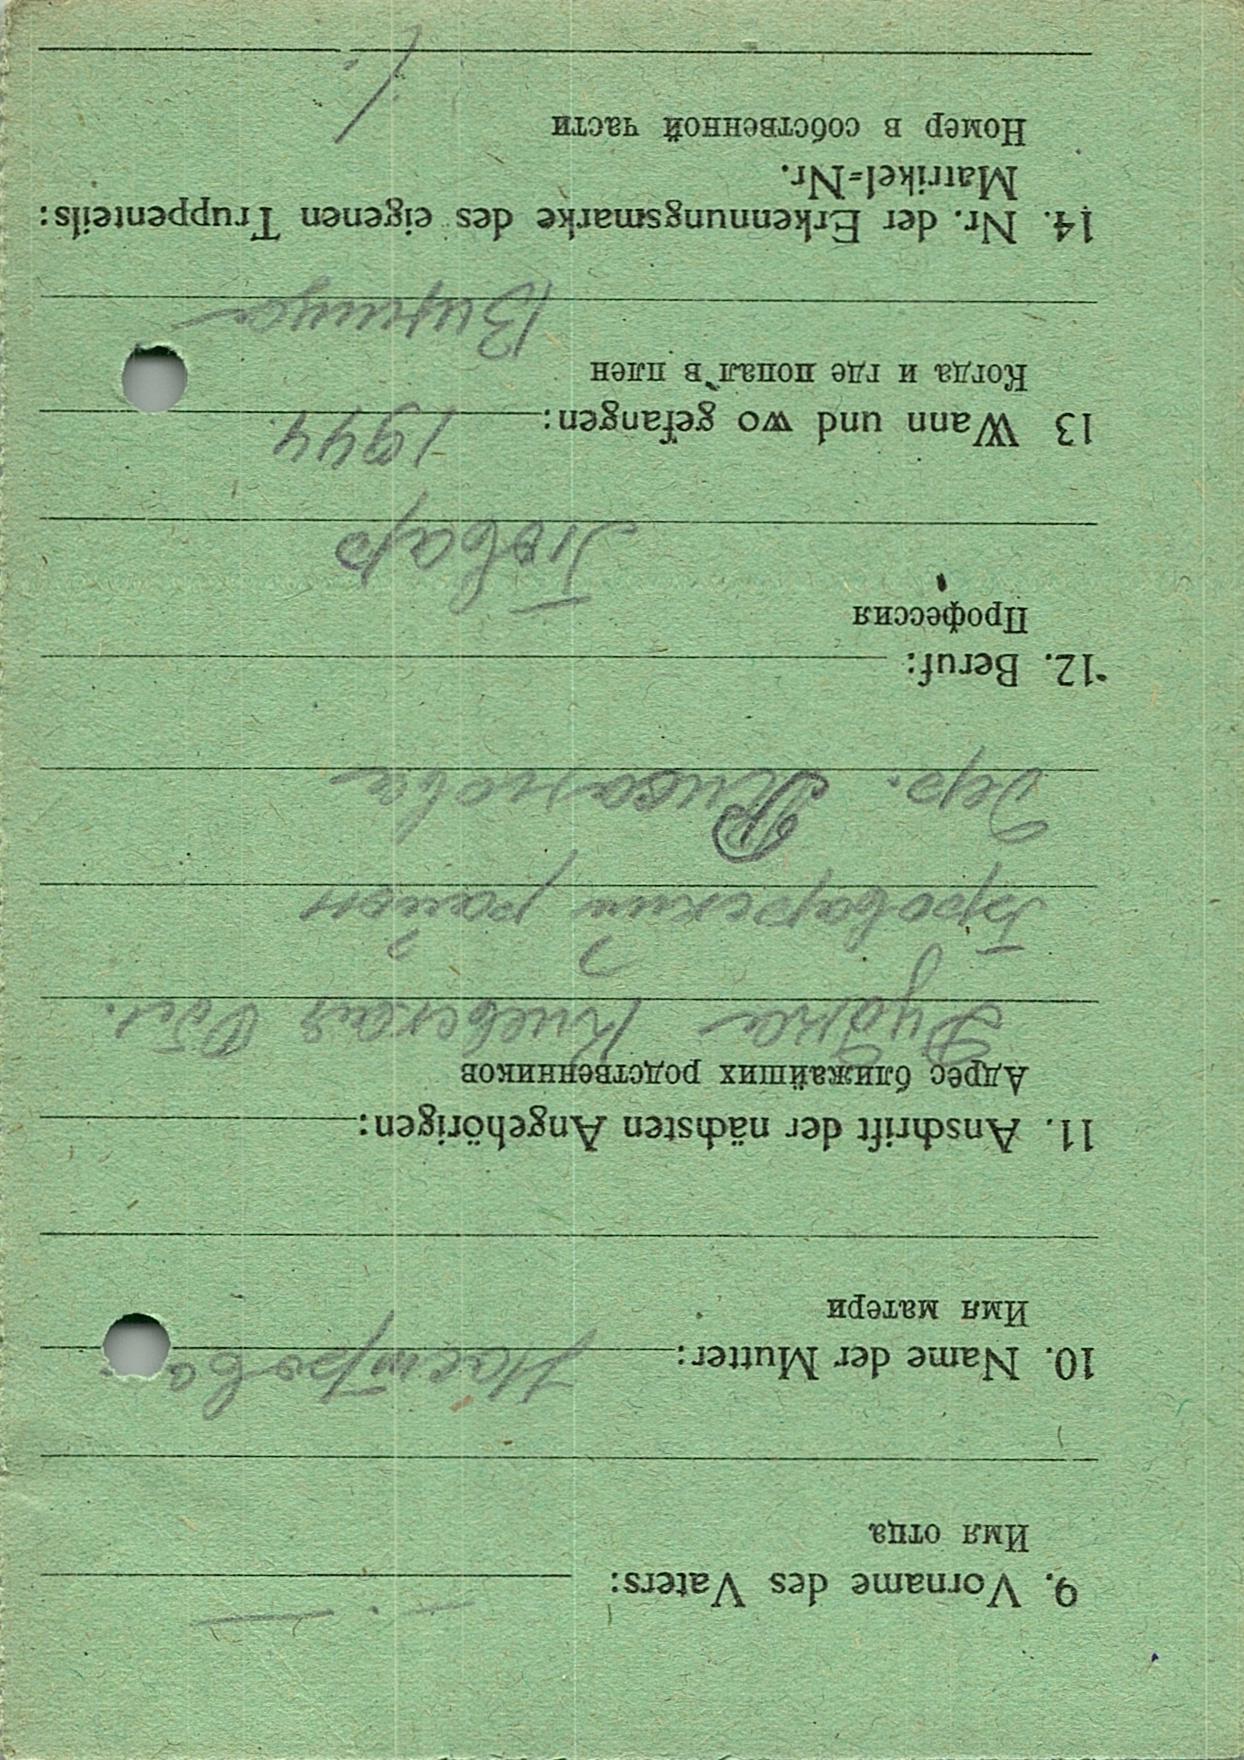 9. Vorname des Vaters: —
Имя отца
10. Name der Mutter:
Имя матери
11. Anschrift der nächsten Angehörigen:
Адрес ближайших родственников
Киевская Обл.
Броварский район
дер.
12. Beruf:
Профессия
Повар
13 Wann und wo gefangen: 1944.
Когда и где попал в плен
14. Nr. der Erkennungsmarke des eigenen Truppenteils:
Matrikel=Nr.
Номер в собственной части